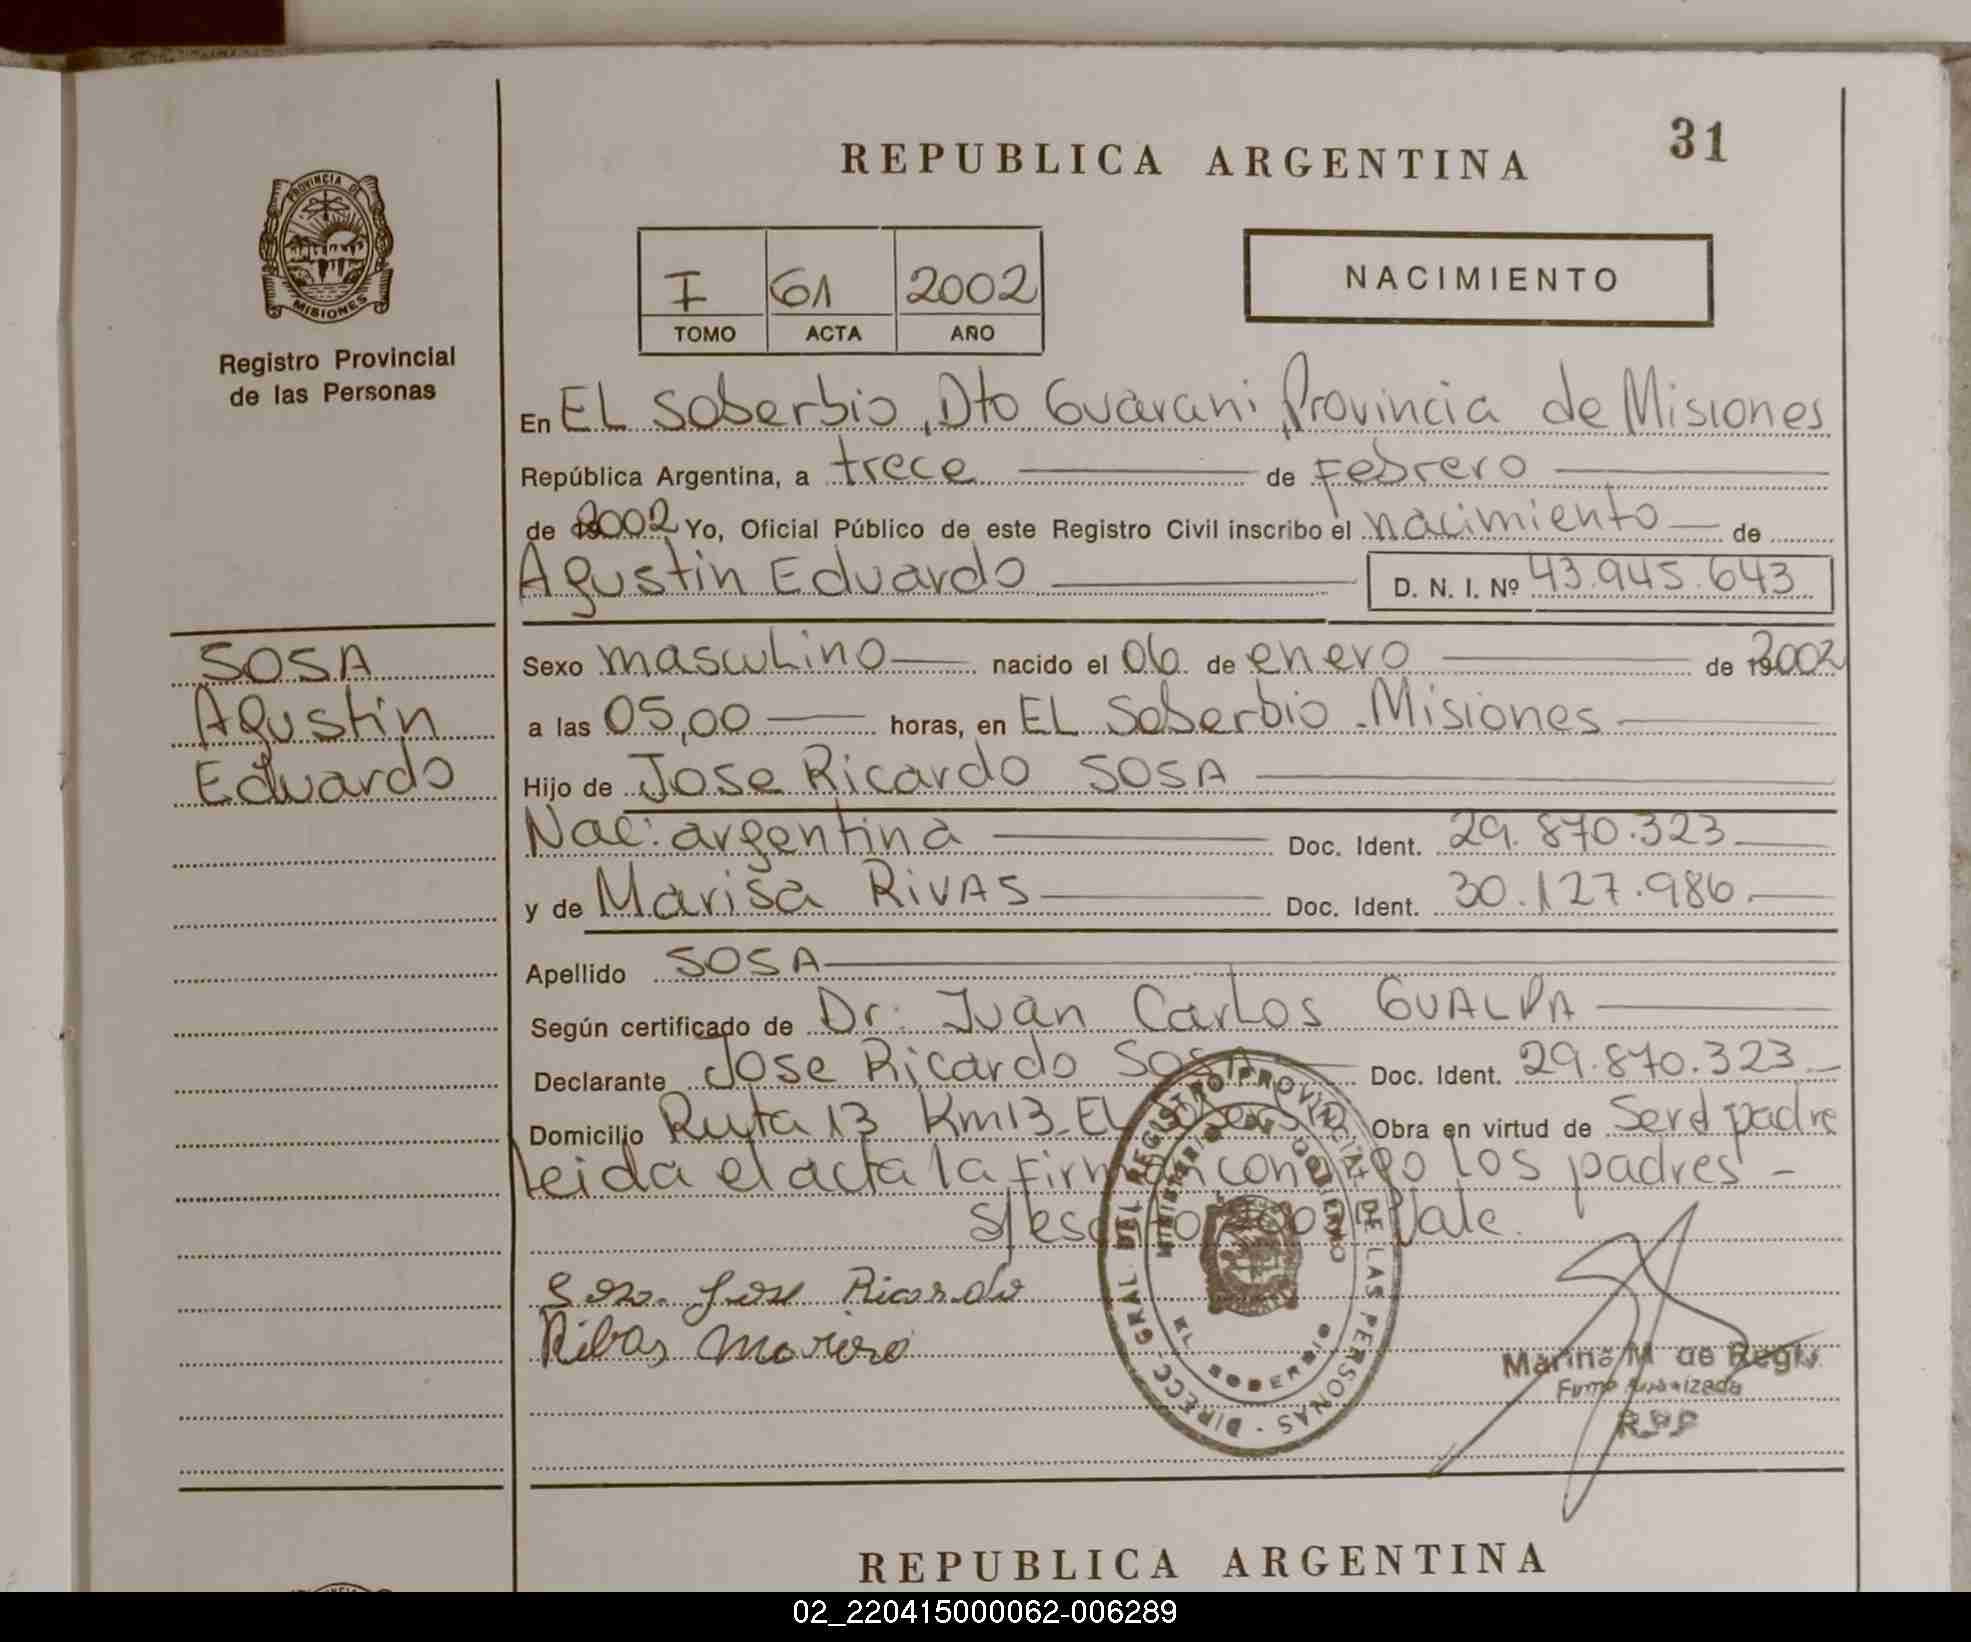 31
REPUBLICA ARGENTINA
PROVINCIA DE
MISIONES
Registro Provincial
de las Personas
I 61 2002
TOMO ACTA AÑO
NACIMIENTO
En EL Soberbio, Dto Guarani, Provincia de Misiones
República Argentina, a trece de Febrero
de 2002 Yo, Oficial Público de este Registro Civil inscribo el nacimiento de
Agustin Eduardo D. N. I. Nº 43.945.643
SOSA
Agustin
Eduardo
Sexo masculino nacido el 06 de enero de 2002
a las 05,00 horas, en EL Soberbio - Misiones
Hijo de Jose Ricardo SOSA
Nac: argentina Doc. Ident. 29.870.323
y de Marisa RIVAS Doc. Ident. 30.127.986
Apellido SOSA
Según certificado de Dr. Juan Carlos GUALPA
Declarante Jose Ricardo SOSA Doc. Ident. 29.870.323
Domicilio Ruta 13 Km13 - EL Soberbio Obra en virtud de Ser el padre
Leida el acta la firman conmigo los padres -
s/escrito 2002 Vale.
Sosa Jose Ricardo
Ribas
DIRECC. GRAL. DEL REGISTRO PROVINCIAL DE LAS PERSONAS
MINISTERIO DE GOBIERNO
EL SOBERBIO
Marina M de Regis
Firma Autorizada
RPP
REPUBLICA ARGENTINA
02_220415000062-006289